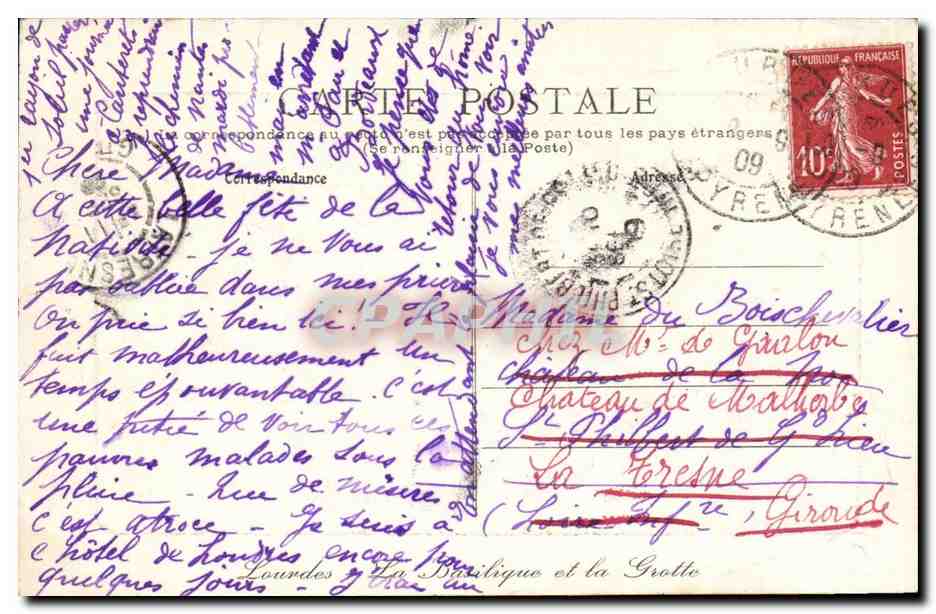 CARTE POSTALE
La correspondance au recto n'est pas acceptée par tous les pays étrangers
(Se renseigner à la Poste)
Correspondance
Adresse
Chère Madame
A cette belle fête de la
Nativité je ne vous ai
pas oubliée dans mes prières
On prie si bien ici! Il
fait malheureusement un
temps épouvantable. C'est
une pitié de voir tous ces
pauvres malades sous la
pluie - Que de misères
c'est atroce - Je suis à
l'hôtel de Londres encore pour
quelques jours - J'irai
un rayon de
soleil passer
une journée
à Cauterets
reprendrai
le chemin
de Nantes
mardi pro-
en attendant
je vous envoie
mes meilleures amitiés
Madame du Boischevalier
chez Mme de
château de la
Château de Malherbe
St Philbert de Gd Lieu
La Tresne
(Loire Infre, Gironde
REPUBLIQUE FRANÇAISE
10c
POSTES
09
Lourdes - La Basilique et la Grotte
CPAPHIL